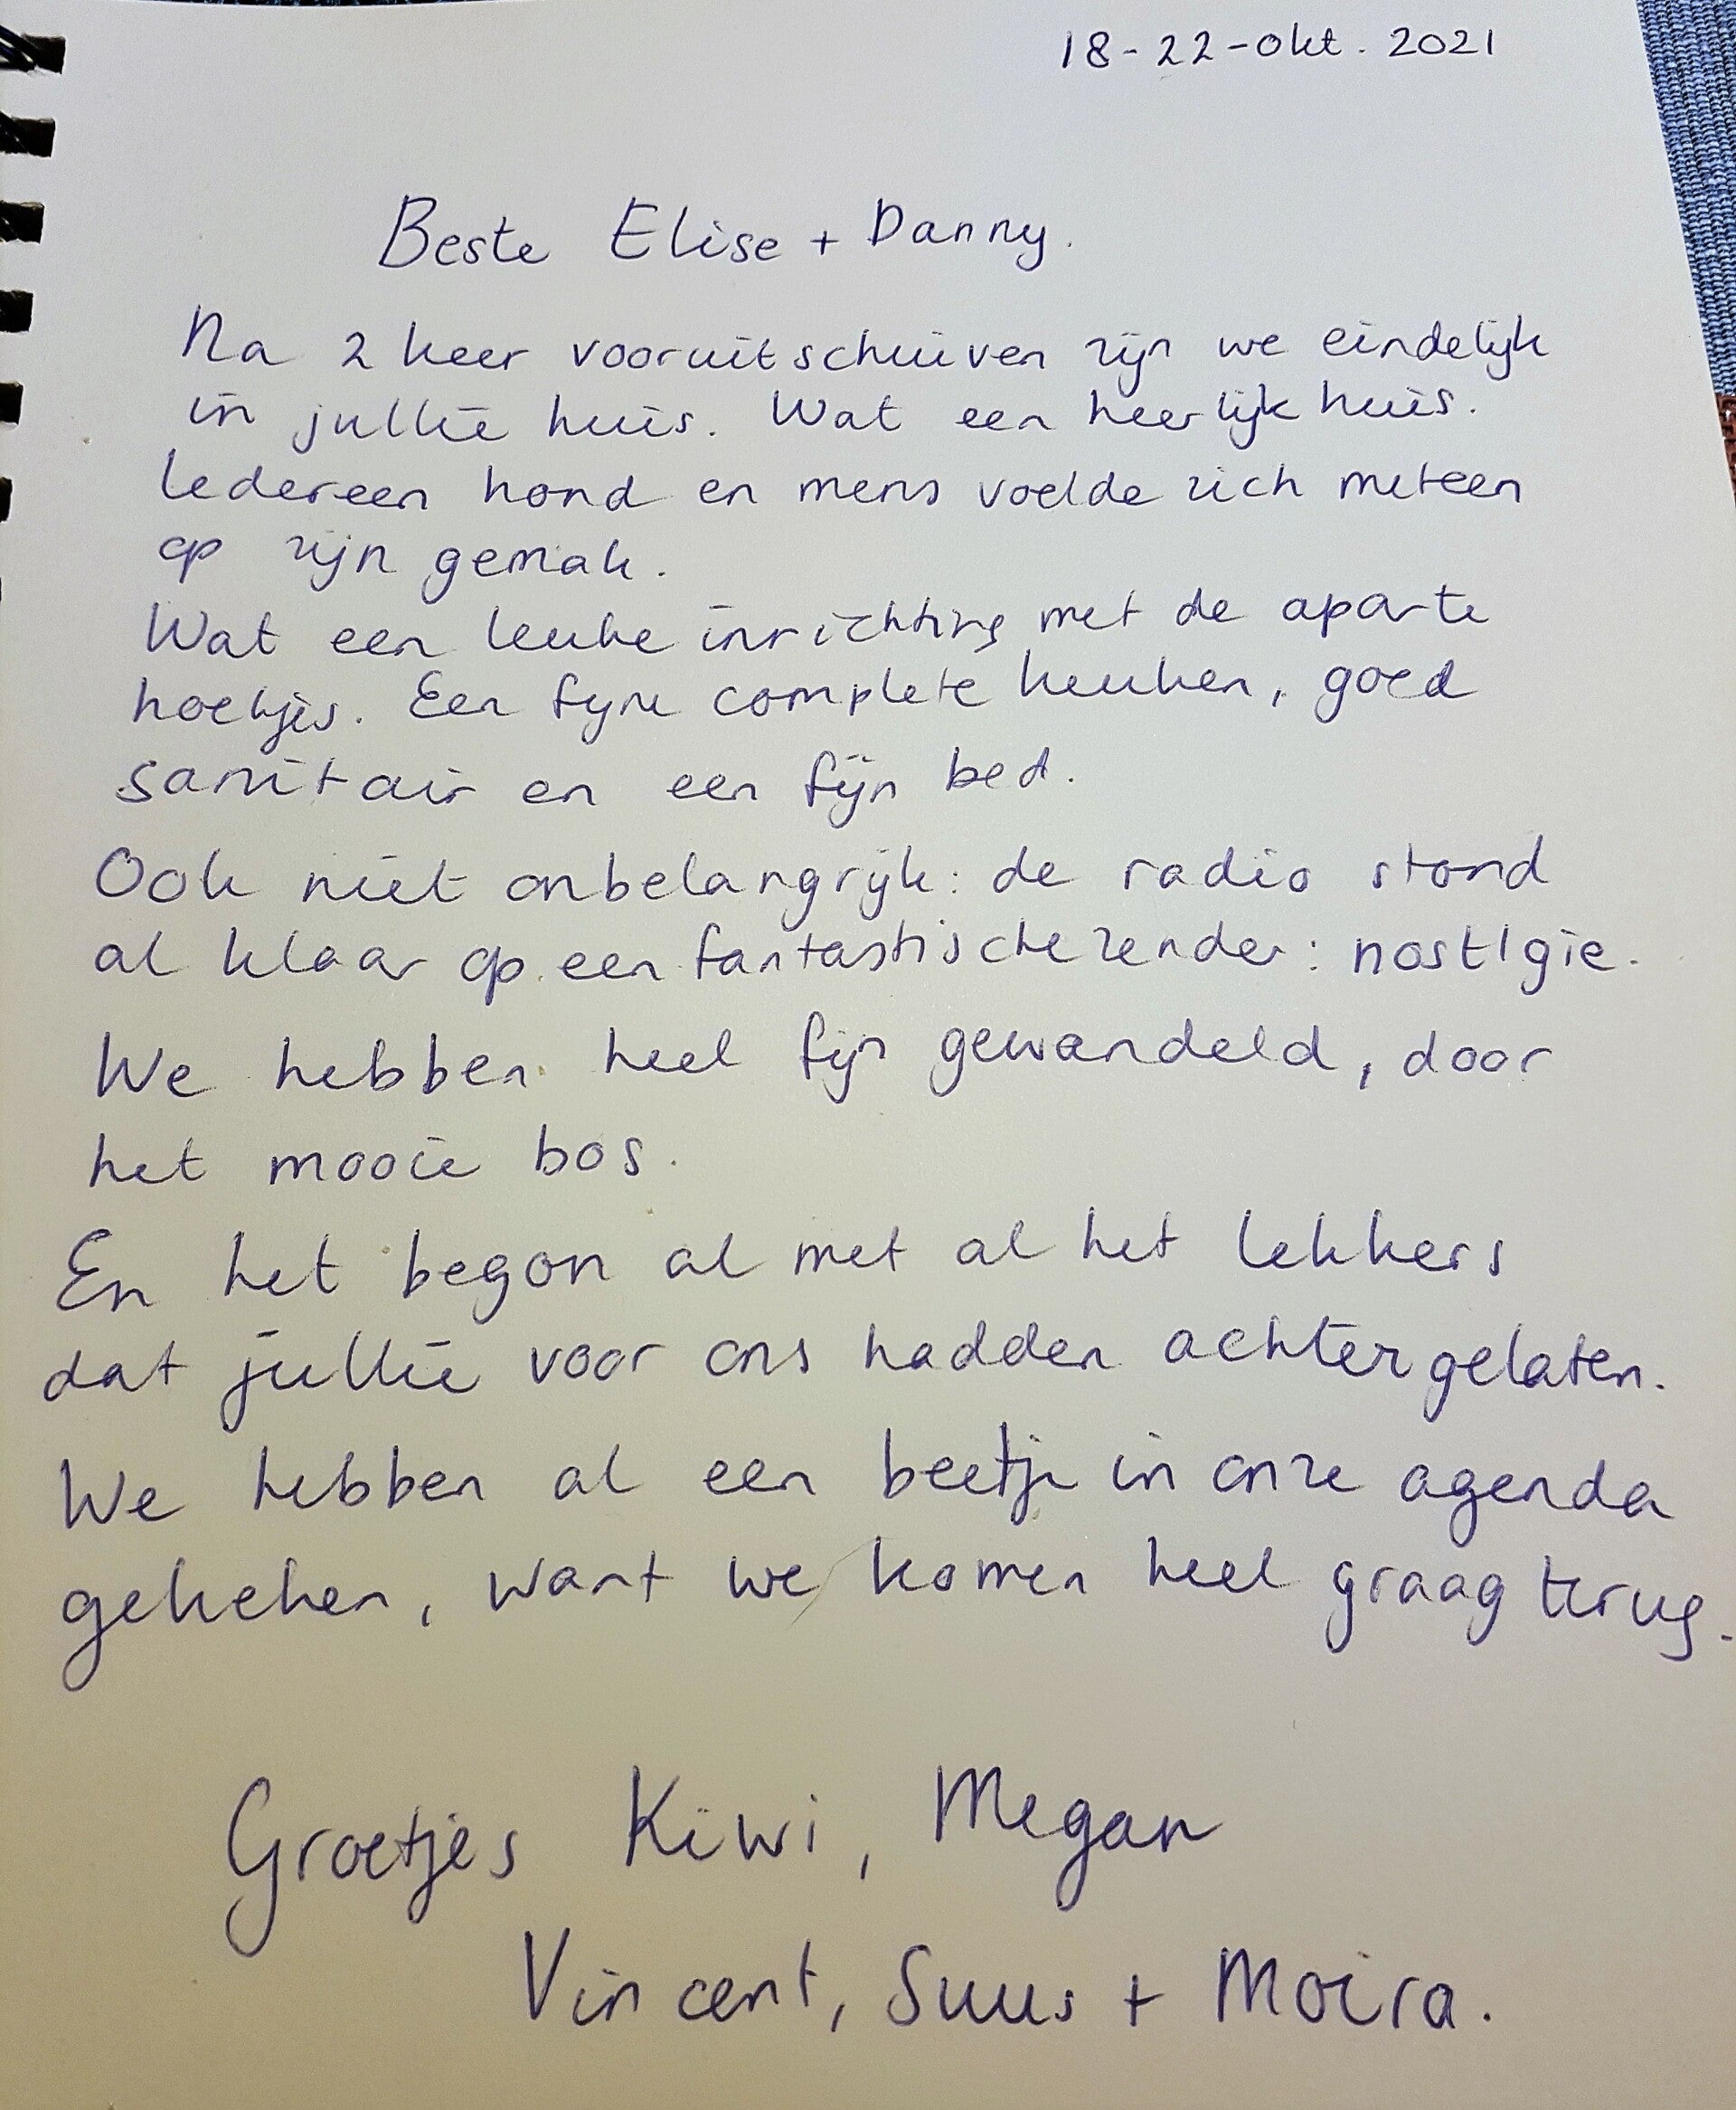 18-22-okt. 2021
Beste Elise + Danny.
Na 2 keer vooruitschuiven zijn we eindelijk
in jullie huis. Wat een heerlijk huis.
Iedereen hond en mens voelde zich meteen
op zijn gemak.
Wat een leuke inrichting met de aparte
hoekjes. Een fijne complete keuken, goed
sanitair en een fijn bed.
Ook niet onbelangrijk: de radio stond
al klaar op een fantastische zender: nostlgie.
We hebben heel fijn gewandeld, door
het mooie bos.
En het begon al met al het lekkers
dat jullie voor ons hadden achtergelaten.
We hebben al een beetje in onze agenda
gekeken, want we komen heel graag terug.
Groetjes Kiwi, Megan
Vincent, Suus + Moira.